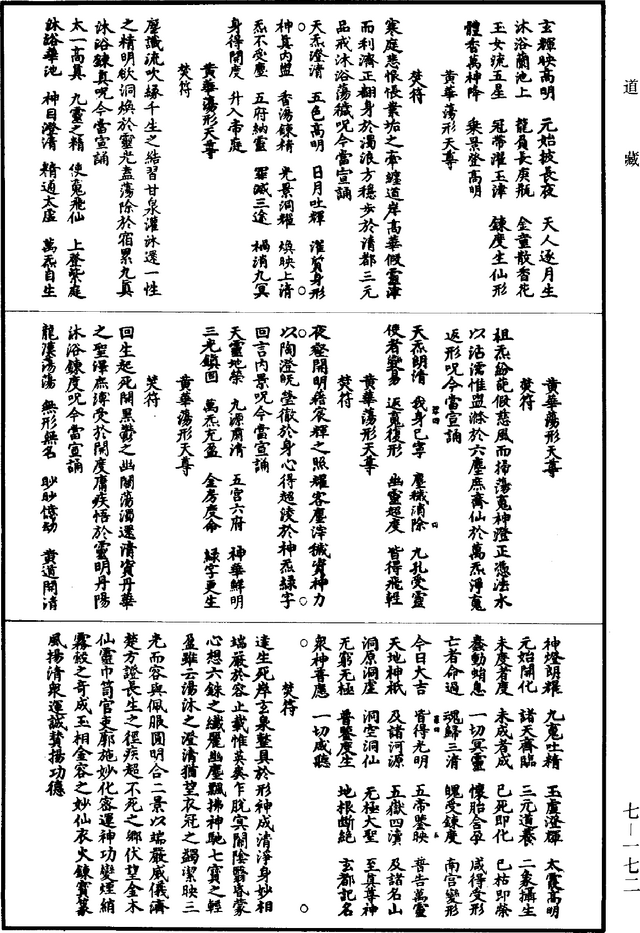 道藏
玄輝映高明　元始披長夜　天人逐月生
沐浴蘭池上　龍負長庚瓶　金童散香花
玉女流五星　冠帶濯玉津　鍊度生仙形
體香萬神降　乘景登高明
黄華蕩形天尊
焚符
寒庭悲悵悵業垢之牽纏道岸高華假靈津
而利濟正翻身於濁浪方穩步於清都三元
品戒沐浴蕩穢呪今當宣誦
天炁澄清　五色高明　日月吐輝　灌質身形
神真内盥　香湯鍊精　光景洞耀　煥映上清
炁不受塵　五府納靈　罪滅三途　禍消九冥
身得開度　升入帝庭
黄華蕩形天尊
焚符
塵識流吹緣千生之結習甘泉灌沐還一性
之精明欲洞煥於靈光盍蕩除於宿累九真
沐浴鍊真呪今當宣誦
太一高真　九靈之精　使蒐飛仙　上登紫庭
沐浴華池　神目澄清　精通太虛　萬炁自生
黄華蕩形天尊
焚符
祖炁紛葩假慈風而掃蕩蒐神澄正憑法水
以沾濡惟盥滌於六塵庶齊仙於萬炁淨蒐
返形呪今當宣誦
天炁朗清　我身已寧　塵穢消除　九孔受靈
使者變易　返蒐復形　幽靈超度　皆得飛輕
黄華蕩形天尊
焚符
夜壑開明藉宸輝之照耀客塵滓穢資神力
以陶澄旣瑩徹於身心得超淩於神炁綠字
回言内景呪今當宣誦
天靈地榮　九源肅清　五宫六府　神華鮮明
三光鎮固　萬炁充盈　金房度命　緑字更生
黄華蕩形天尊
焚符
回生起死開黑鬱之幽關蕩濁還清資丹華
之聖澤庶溥受於開度膺疾悟於靈明丹陽
沐浴鍊度呪今當宣誦
龍漢蕩蕩　無形無名　眇眇億劫　黄道開清
神燈朗耀　九蒐吐精　玉虛澄輝　太霞高明
元始開化　諸天齊臨　三元道養　二象攝生
未度者度　未成者成　已死即化　已枯即榮
蠢動蛸息　一切冥靈　懷胎含孕　咸得受形
亡者命過　魂歸三清　魄受鍊度　南宫變形
今日大吉　皆得光明　五帝鑒映　普告萬靈
天地神祇　及諸河源　五嶽四瀆　及諸名山
洞原洞崖　洞空洞仙　無極大聖　至真尊神
无窮无極　普鑒度生　地根斷絶　玄都記名
衆神普應　一切咸聽
焚符
逹生死岸玄泉整具於形神成清淨身妙相
端嚴於容止載惟英英乍脱冥關陰翳昏蒙
心想六銖之纖麗幽塵飄拂神馳七寶之輕
盈雖云湯沐之澄清猶望衣冠之蠲潔映三
光而容與佩服圓明合二景以端嚴威儀濟
楚方證長生之徑疾超不死之鄉伏望金木
仙靈巾笥官吏廓施妙化密運神功變煙綃
霧縠之奇成玉相金容之妙仙衣火鍊寶篆
風揚清衆運誠贊揚功德
七—一七二